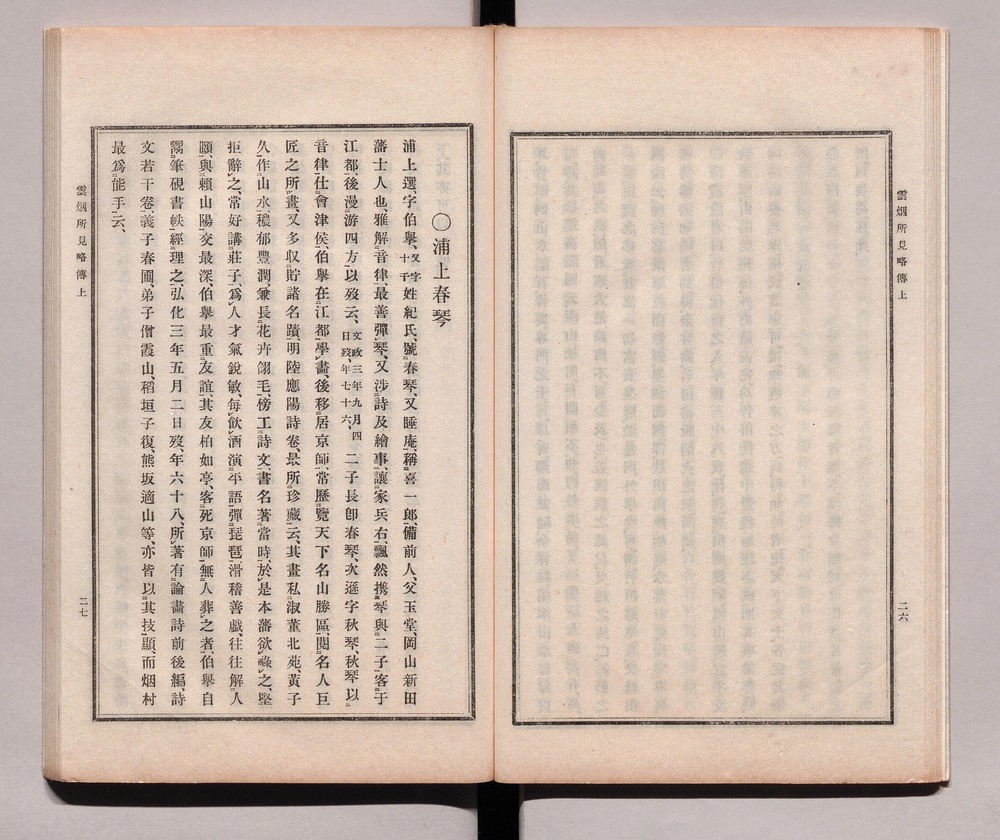 雲烟所見略傳上
二六
〇浦上春琴
浦上選字伯擧、又字十千姓紀氏、號春琴、又睡庵、稱喜一郎、備前人、父玉堂、岡山新田
藩士人也、雅解音律、最善彈琴、又涉詩及繪事、讓家兵右、飄然携琴與二子客于
江都、後漫游四方以歿云、文政三年九月四日歿、年七十六、二子長卽春琴、次遜字秋琴、秋琴以
音律仕會津侯、伯擧在江都學畫、後移居京師、常歷覽天下名山勝區、閱名人巨
匠之所畫、又多収貯諸名蹟、明陸應陽詩卷、最所珍藏云、其畫私淑董北苑、黃子
久、作山水、穠郁豐潤、兼長花卉翎毛、傍工詩文、書名著當時、於是本藩欲祿之、堅
拒辭之、常好講莊子、爲人才氣銳敏、每飮酒演平語、彈琵琶、滑稽善戲、往往解人
頤、與賴山陽交最深、伯擧最重友誼、其友柏如亭、客死京師、無人葬之者、伯擧自
鬻筆硯書帙經理之、弘化三年五月二日歿、年六十八、所著有論畵詩前後編、詩
文若干卷、義子春圃、弟子僧霞山、稻垣子復、熊坂適山等、亦皆以其技顯、而烟村
最爲能手云、
雲烟所見略傳上
二七